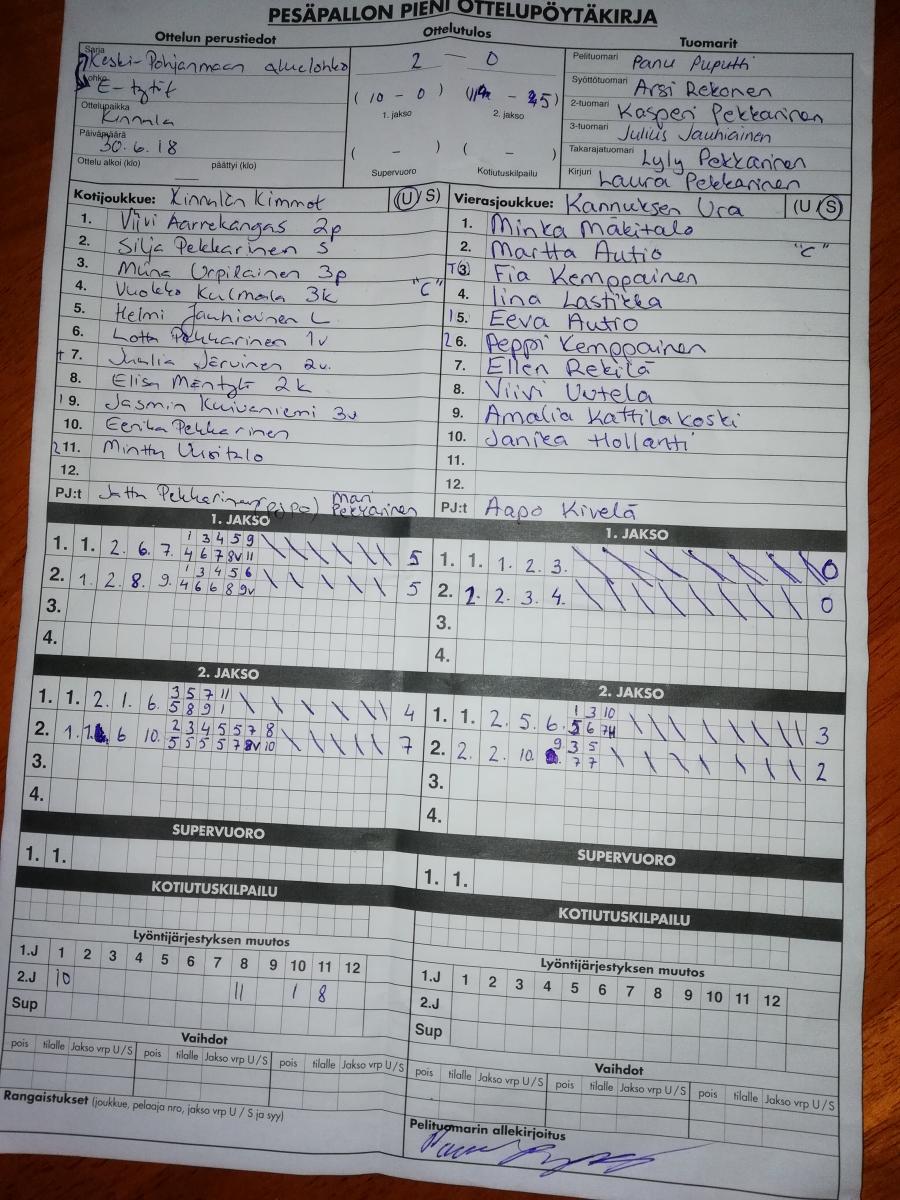 PESÄPALLON PIENI OTTELUPÖYTÄKIRJA
Ottelun perustiedot
Ottelutulos
Tuomarit
Sarja
Keski-Pohjanmaan aluelohko
Lohko
E-tytöt
Ottelupaikka
Kinnula
Päivämäärä
30.6.18
Ottelu alkoi (klo) päättyi (klo)
2 — 0
(10 - 0)
1. jakso
2. jakso
( - ) ( - )
Supervuoro Kotiutuskilpailu
Pelituomari Panu Puputti
Syöttötuomari Arsi Rekonen
2-tuomari Kasperi Pekkarinen
3-tuomari Julius Jauhiainen
Takarajatuomari Lyly Pekkarinen
Kirjuri Laura Pekkarinen
Kotijoukkue: Kinnulan Kimmot (U/S)
1. Viivi Aarrekangas 2p
2. Silja Pekkarinen S
3. Miina Urpilainen 3p
4. Vuokko Kulmala 3k "C"
5. Helmi Jauhiainen L
6. Lotta Pekkarinen 1v
7. Järvinen 2v.
8. Elisa Mäntylä 2k
1 9. Jasmin Kuivaniemi 3v
10. Eerika Pekkarinen
2 11. Minttu Uusitalo
12.
PJ:t Jatta Pekkarinen (pjpo) Mari Pekkarinen
Vierasjoukkue: Kannuksen Ura (U/S)
1. Minka Mäkitalo
2. Martta Autio "C"
T 3. Fia Kemppainen
4. Iina Lastikka
1 5. Eeva Autio
2 6. Peppi Kemppainen
7. Ellen Rekilä
8. Viivi Uutela
9. Amalia Kattilakoski
10. Janika Hollanti
11.
12.
PJ:t Aapo Kivelä
1. JAKSO
1. 1. 2. 6. 7. 1 3 4 5 9 5
4 6 7 8V 11
2. 1. 2. 8. 9. 1 3 4 5 6 5
4 6 6 8 9V
3.
4.
1. JAKSO
1. 1. 1. 2. 3. 0
2. 1. 2. 3. 4. 0
3.
4.
2. JAKSO
1. 1. 2. 1. 6. 3 5 7 11 4
5 8 9 1
2. 1. 6 10. 2 3 4 5 5 7 8 7
5 5 5 5 7 8V 10
3.
4.
2. JAKSO
1. 1. 2. 5. 6. 1 3 10 3
5 6
2. 2. 2. 10. 9. 3 5 2
7 7
3.
4.
SUPERVUORO
1. 1.
SUPERVUORO
1. 1.
KOTIUTUSKILPAILU
KOTIUTUSKILPAILU
Lyöntijärjestyksen muutos
1.J 1 2 3 4 5 6 7 8 9 10 11 12
2.J 10 11 1 8
Sup
Lyöntijärjestyksen muutos
1.J 1 2 3 4 5 6 7 8 9 10 11 12
2.J
Sup
Vaihdot
pois tilalle Jakso vrp U/S pois tilalle Jakso vrp U/S pois tilalle Jakso vrp U/S
Vaihdot
pois tilalle Jakso vrp U/S pois tilalle Jakso vrp U/S pois tilalle Jakso vrp U/S
Rangaistukset (joukkue, pelaaja nro, jakso vrp U / S ja syy)
Pelituomarin allekirjoitus